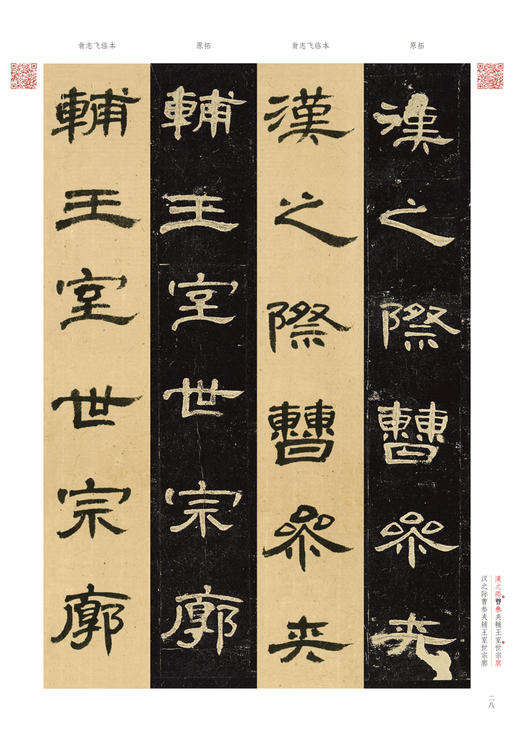 原拓
漢之際曹參夾
翁志飞临本
漢之際曹參夾
原拓
輔王室世宗廓
翁志飞临本
輔王室世宗廓
漢之際曹參夾輔王室世宗廓
汉之际曹参夹辅王室世宗廓
二八